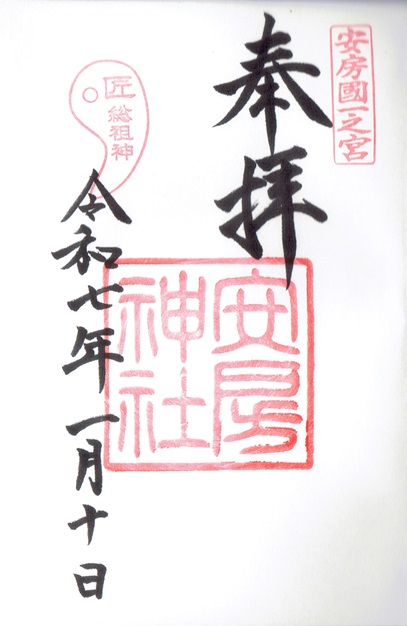 安房國一之宮
奉拝
安房
神社
匠
総祖神
令和七年一月十日